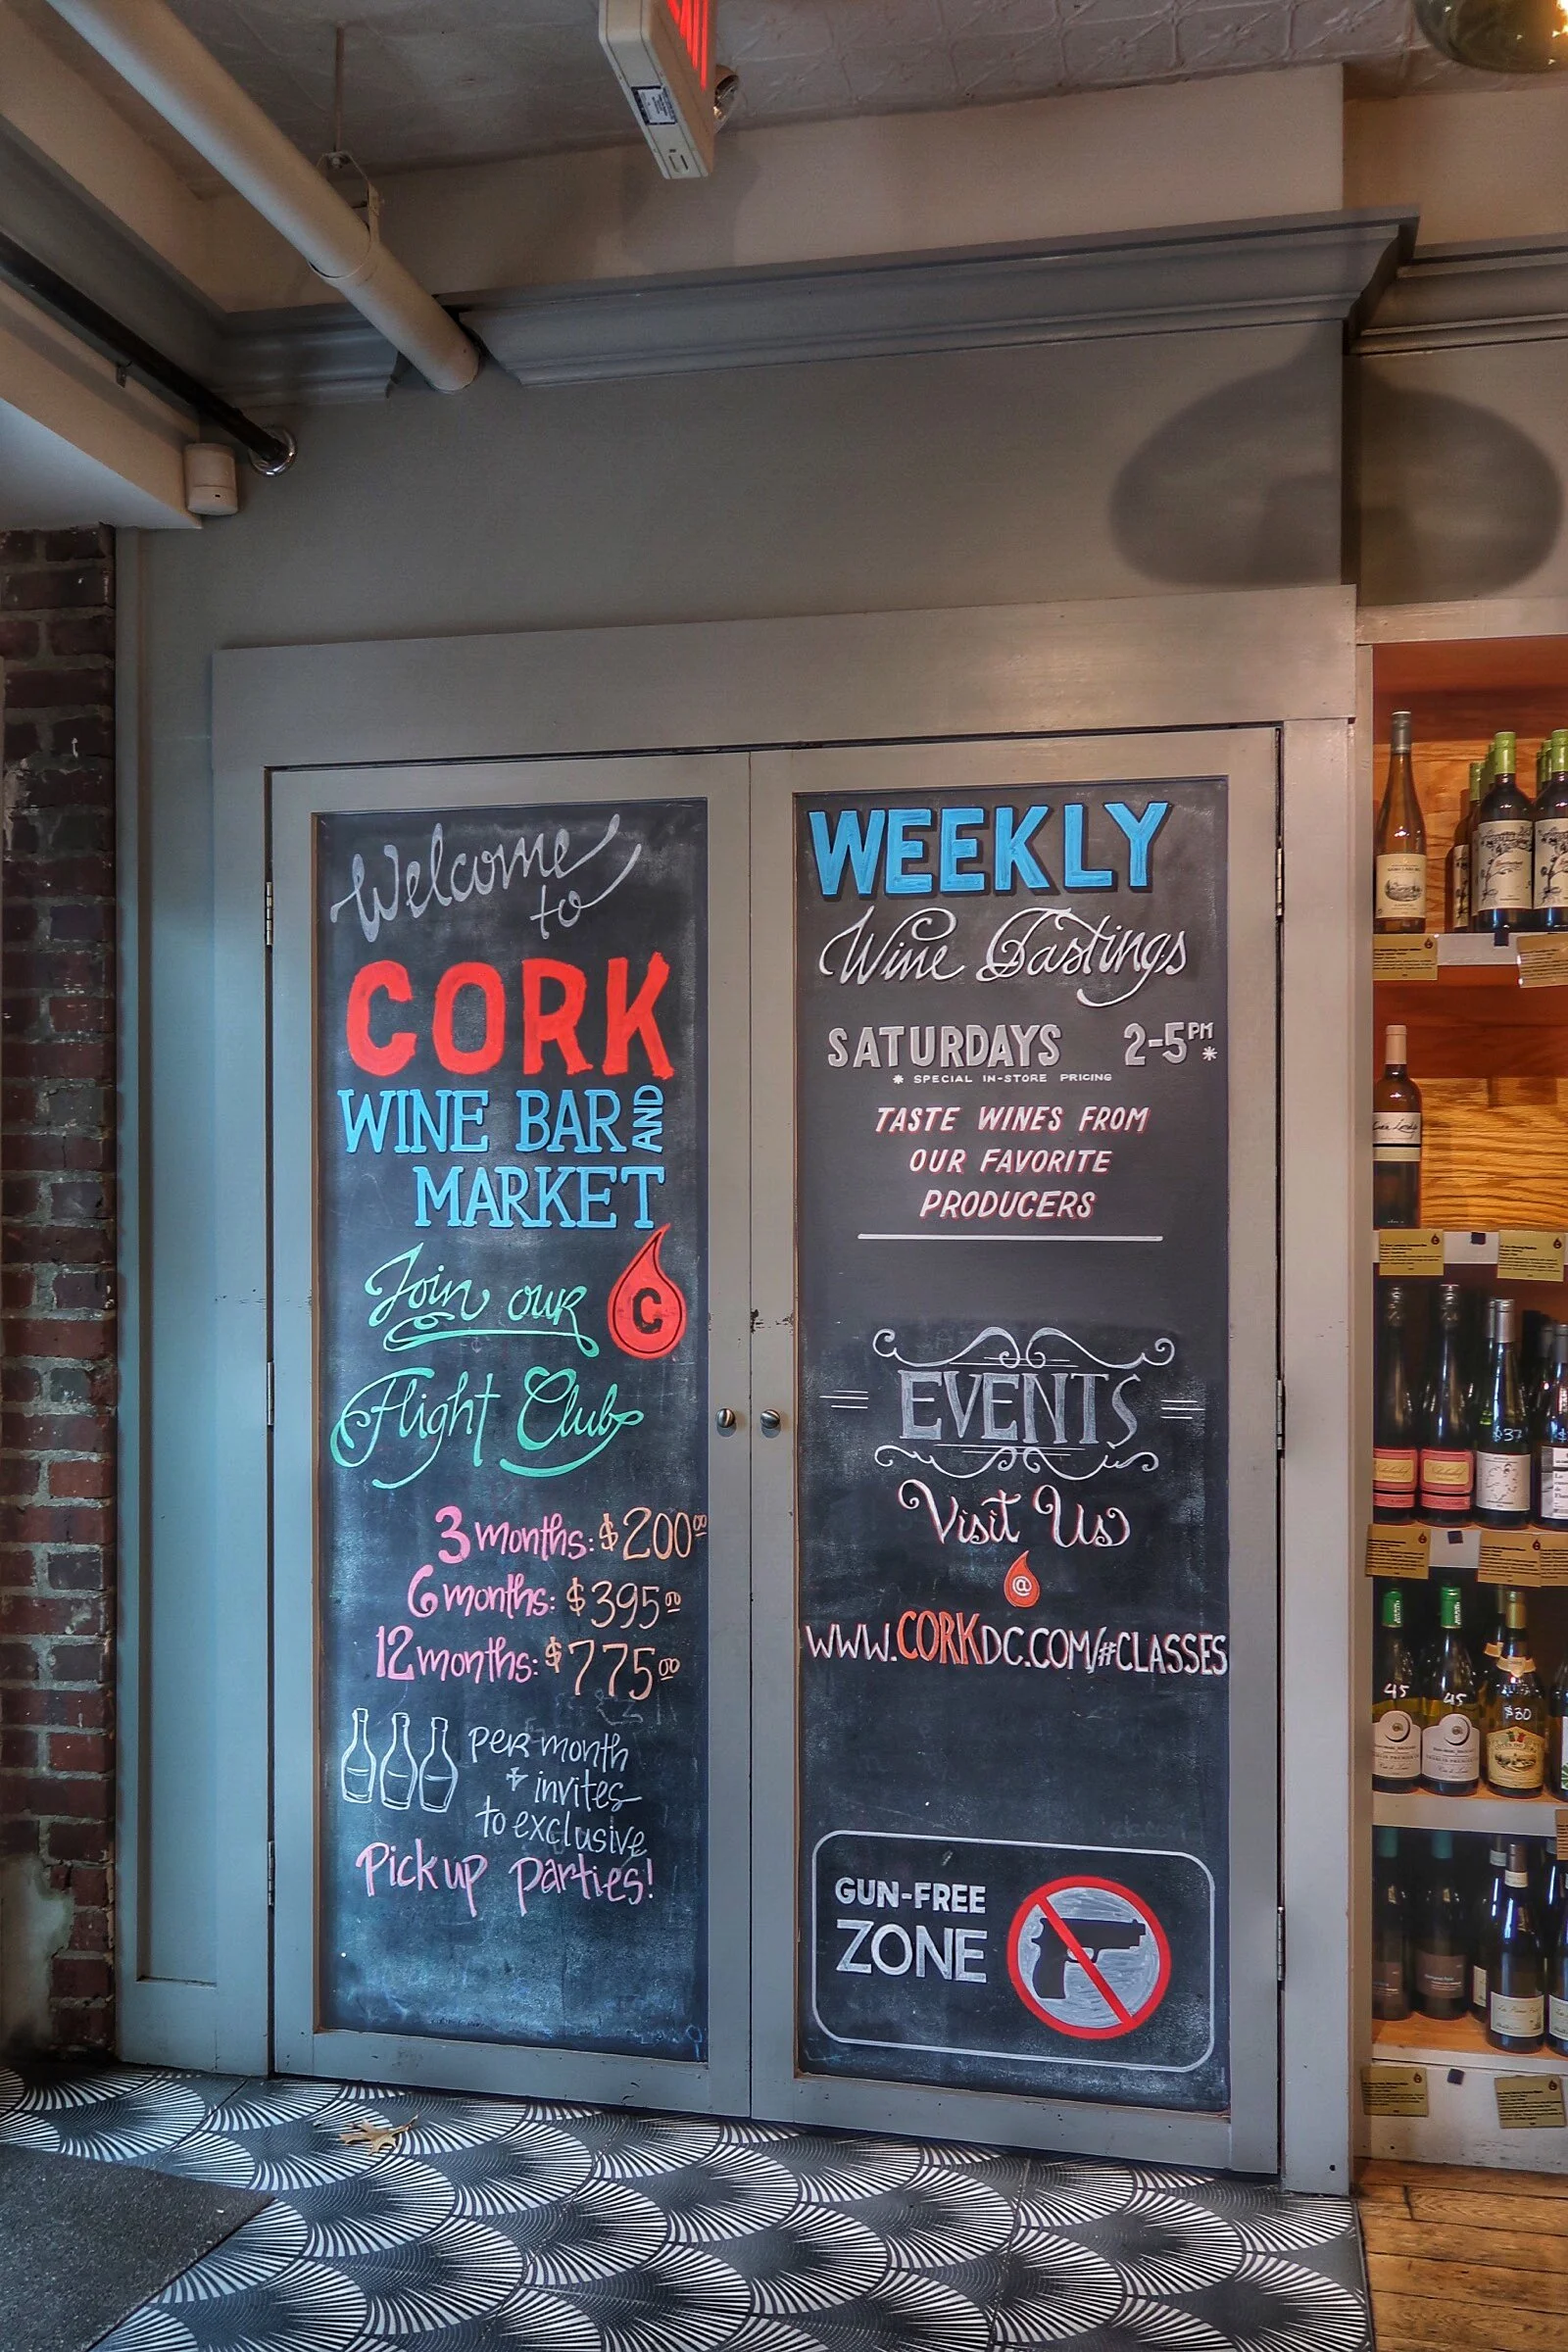 Welcome
to
CORK
WINE BAR AND
MARKET
Join our
C
Flight Club
3 months: $200.00
6 months: $395.00
12 months: $775.00
per month
+ invites
to exclusive
Pick up parties!
WEEKLY
Wine Tastings
SATURDAYS 2-5PM*
* SPECIAL IN-STORE PRICING
TASTE WINES FROM
OUR FAVORITE
PRODUCERS
EVENTS
Visit Us
@
WWW.CORKDC.COM/#CLASSES
GUN-FREE
ZONE
$37
45
45
$30